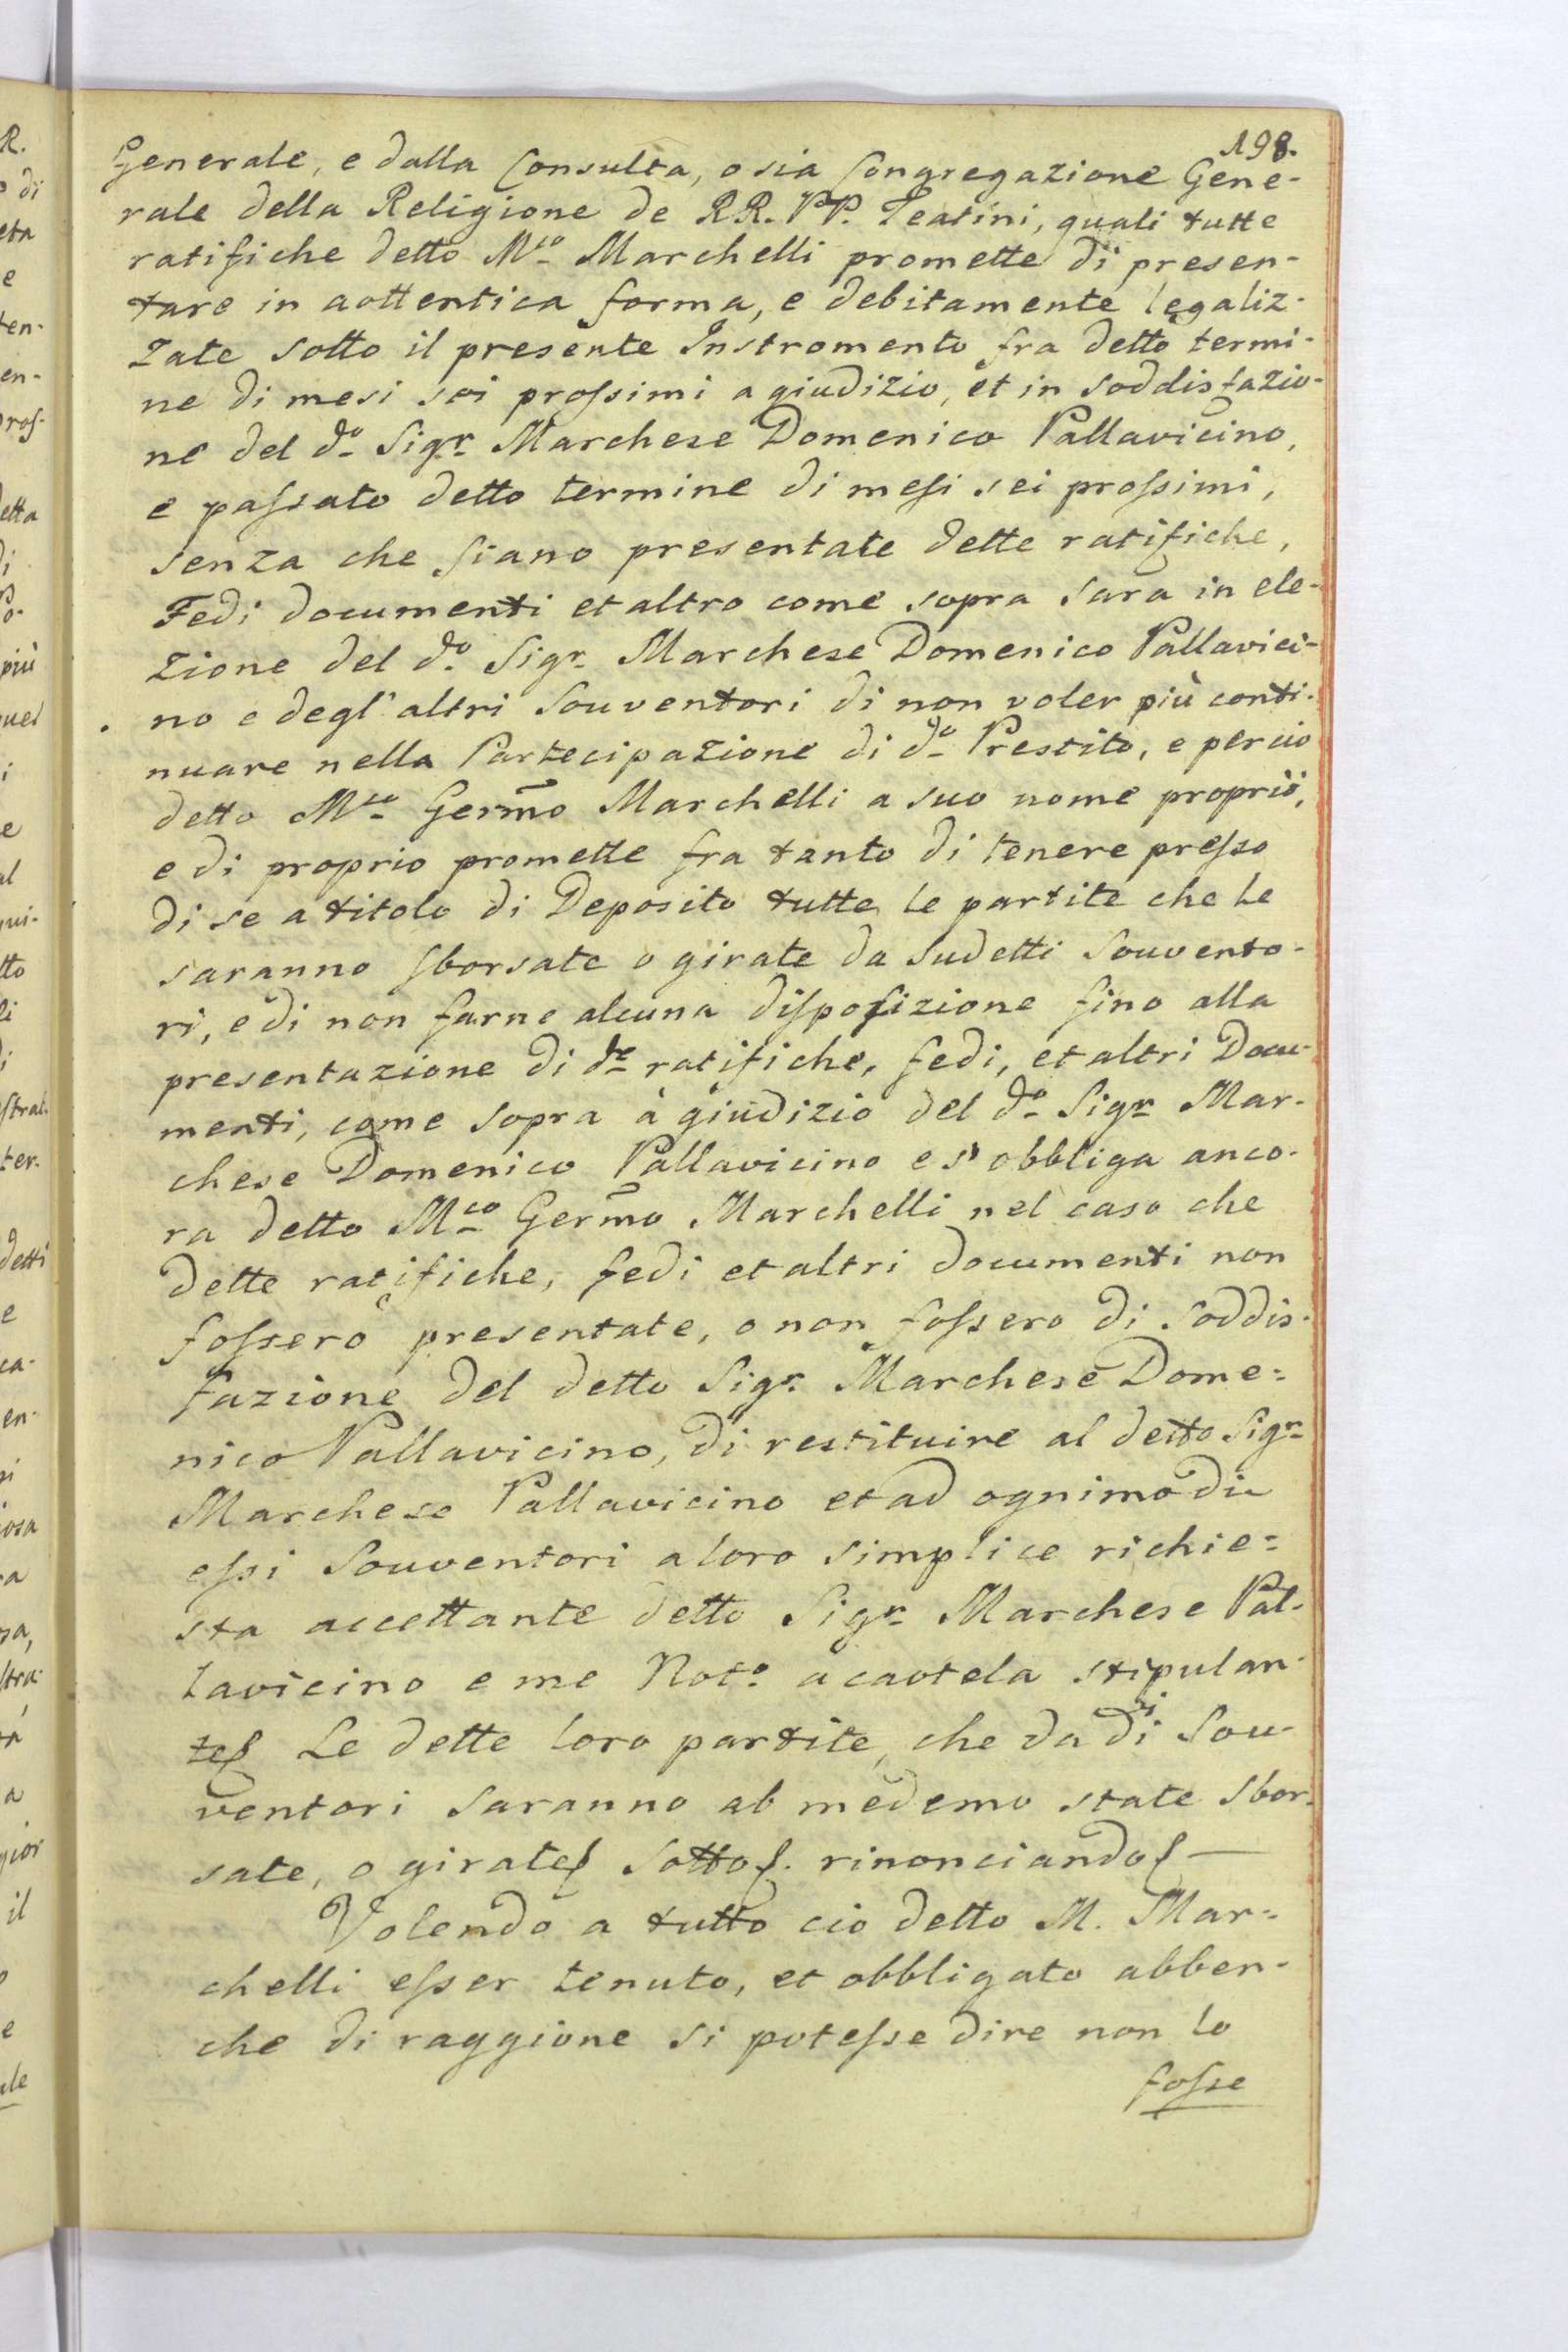 198.
Generale, e dalla Consulta, o sia Congregazione Gene-
rale della Religione de RR. PP. Teatini, quali tutte
ratifiche detto M.co Marchelli promette di presen-
tare in aottentica forma, e debitamente legaliz-
zate sotto il presente Instromento fra detto termi-
ne di mesi sei prossimi a giudizio, et in soddisfazio-
ne del d.o Sig.r Marchese Domenico Pallavicino,
e passato detto termine di mesi sei prossimi,
senza che siano presentate dette ratifiche,
Fedi documenti et altro come sopra sara in ele-
zione del d.o Sig.r Marchese Domenico Pallavici-
no e degl' altri Souventori di non voler più conti-
nuare nella Partecipazione di d.o Prestito, e percio
detto M.co Germ̃o Marchelli a suo nome proprio,
e di proprio promette fra tanto di tenere presso
di se a titolo di Deposito tutte le partite che le
saranno sborsate o girate da sudetti Souvento-
ri, e di non farne alcuna disposizione fino alla
presentazione di d.e ratifiche, fedi, et altri Docu-
menti, come sopra à giudizio del d.o Sig.r Mar-
chese Domenico Pallavicino e s' obbliga anco-
ra detto M.co Germ̃o Marchelli nel caso che
dette ratifiche, fedi et altri documenti non
fossero presentate, o non fossero di soddis-
fazione del detto Sig.r Marchese Dome=
nico Pallavicino, di restituire al detto Sig.r
Marchese Pallavicino et ad ognimo di
essi Souventori a loro simplice richie=
sta accettante detto Sig.r Marchese Pal-
lavicino e me Not.o a cautela stipulan-
te Le dette loro partite, che da d.i Sou-
ventori saranno ab medemo state sbor-
sate, o girate sotto rinonciando
Volendo a tutto cio detto M. Mar=
chelli esser tenuto, et obbligato abben-
che di raggione si potesse dire non lo
fosse